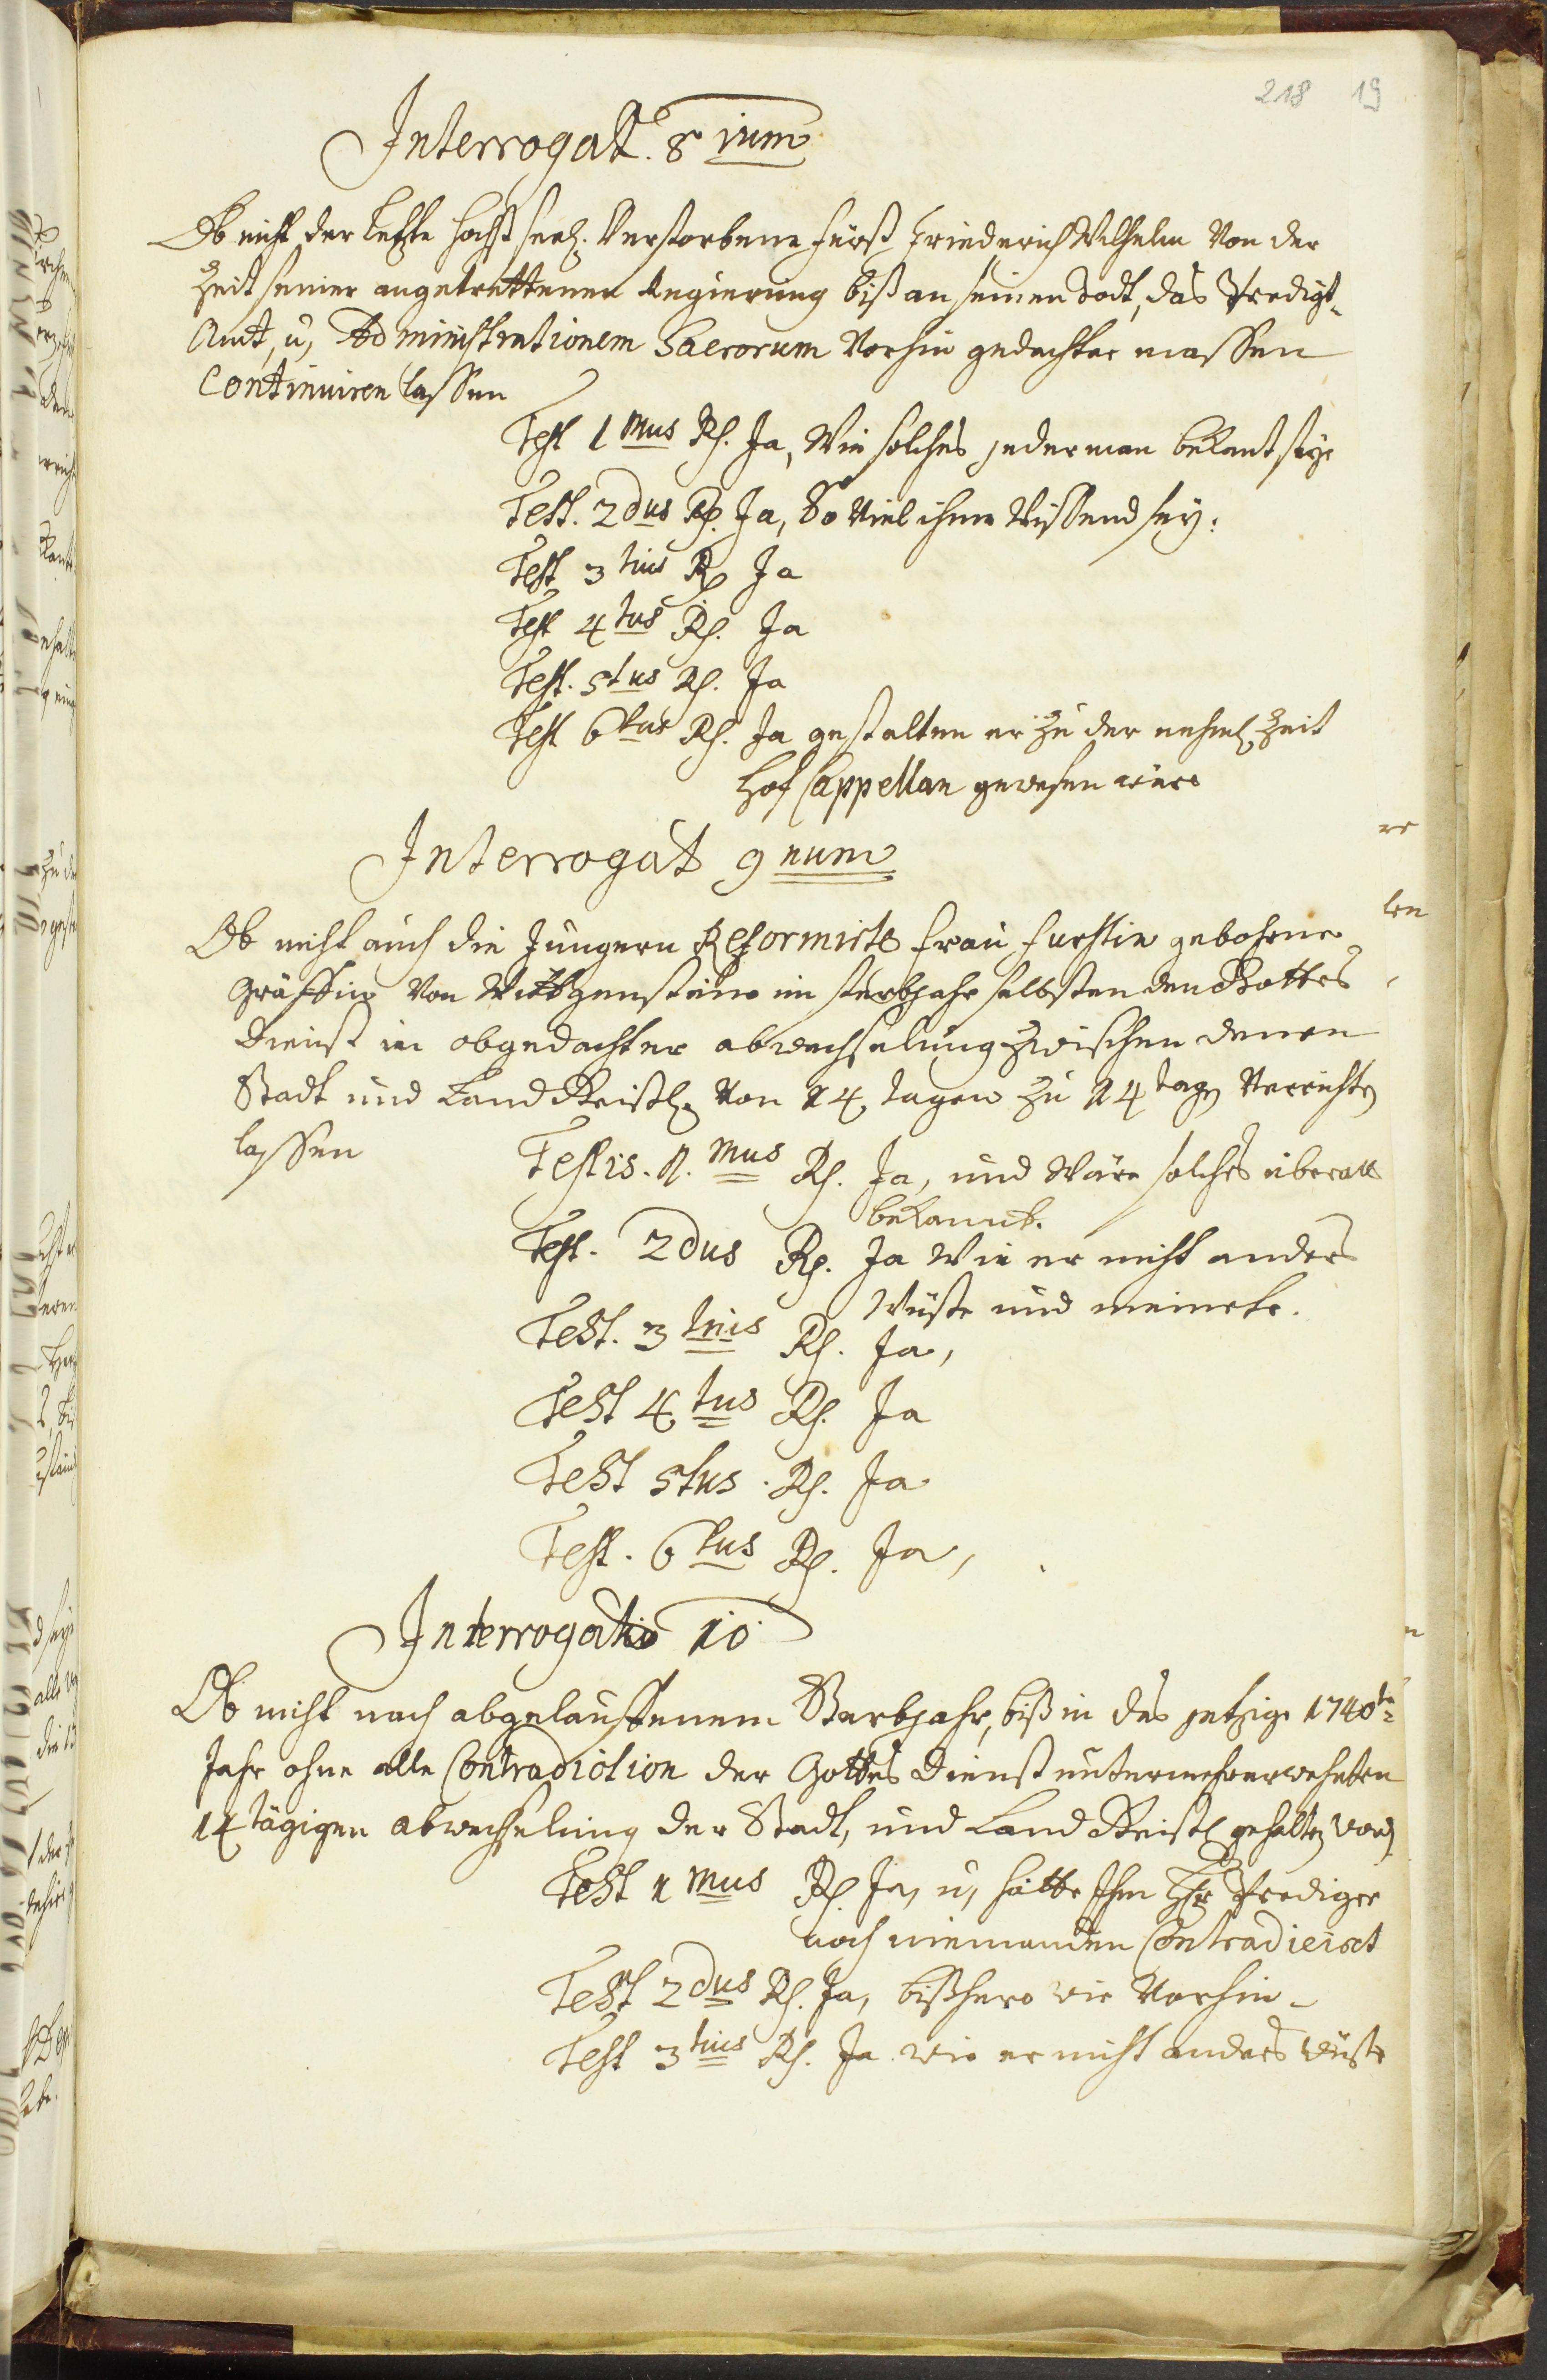 218 19
Interrogat. 8 vum
Ob nicht der letste hochstseel. Verstorbene fürst Friederich Wilhelm Von der
Zeit seiner angetrettenen Regierung biß an seinen Todt, das Predigt-
Amt, u, Administrationem Sacrorum Vorhin gedachter massen
Continuiren lassen
Test 1 mus Rs. Ja, Wie solches jederman bekant seye
Test. 2dus Rs. Ja, So Viel ihme Wissend sey.
Test 3 tius Rs Ja
Test 4 tus Rs. Ja
Test. 5tus Rs. Ja
Test 6 tus Rs. Ja gestalten er zu der nehml Zeit
Hof Cappellan gewesen wäre
Interrogat 9 num
Ob nicht auch die Jüngere Reformirte Frau Furstin gebohrne
Gräffin Von Wittgenstein im sterbjahr selbsten den Gottes
Dienst in obgedachter abwechselung zwischen denen
Stadt und Land Geistl. Von 14 tagen zu 14 tagen Verrichten
lassen
Testis. 1. mus Rs. Ja, und Wäre solches überall
bekannt.
Test. 2dus Rs. Ja Wie er nicht anders
Wüste und meinete.
Test. 3 tius Rs. Ja,
Test 4 tus Rs. Ja
Test 5tus. Rs. Ja
Test. 6 tus Rs. Ja,
Interrogatio 10
Ob nicht nach abgelauffenem Sterbjahr, biß in das jetzige 1740te
Jahr ohne alle Contradiction der Gottes Dienst unter mehrerwehnten
14 tägigen abwechselung der Stadt, und Land Geistl gehalten word
Test 1 mus Rs Ja, u, hätte Ihm Prediger
noch niemanden Contradicirt
Test 2dus Rs. Ja, bißhero wie Vorhin
Test 3 tius Rs. Ja wie er nicht anders wüste